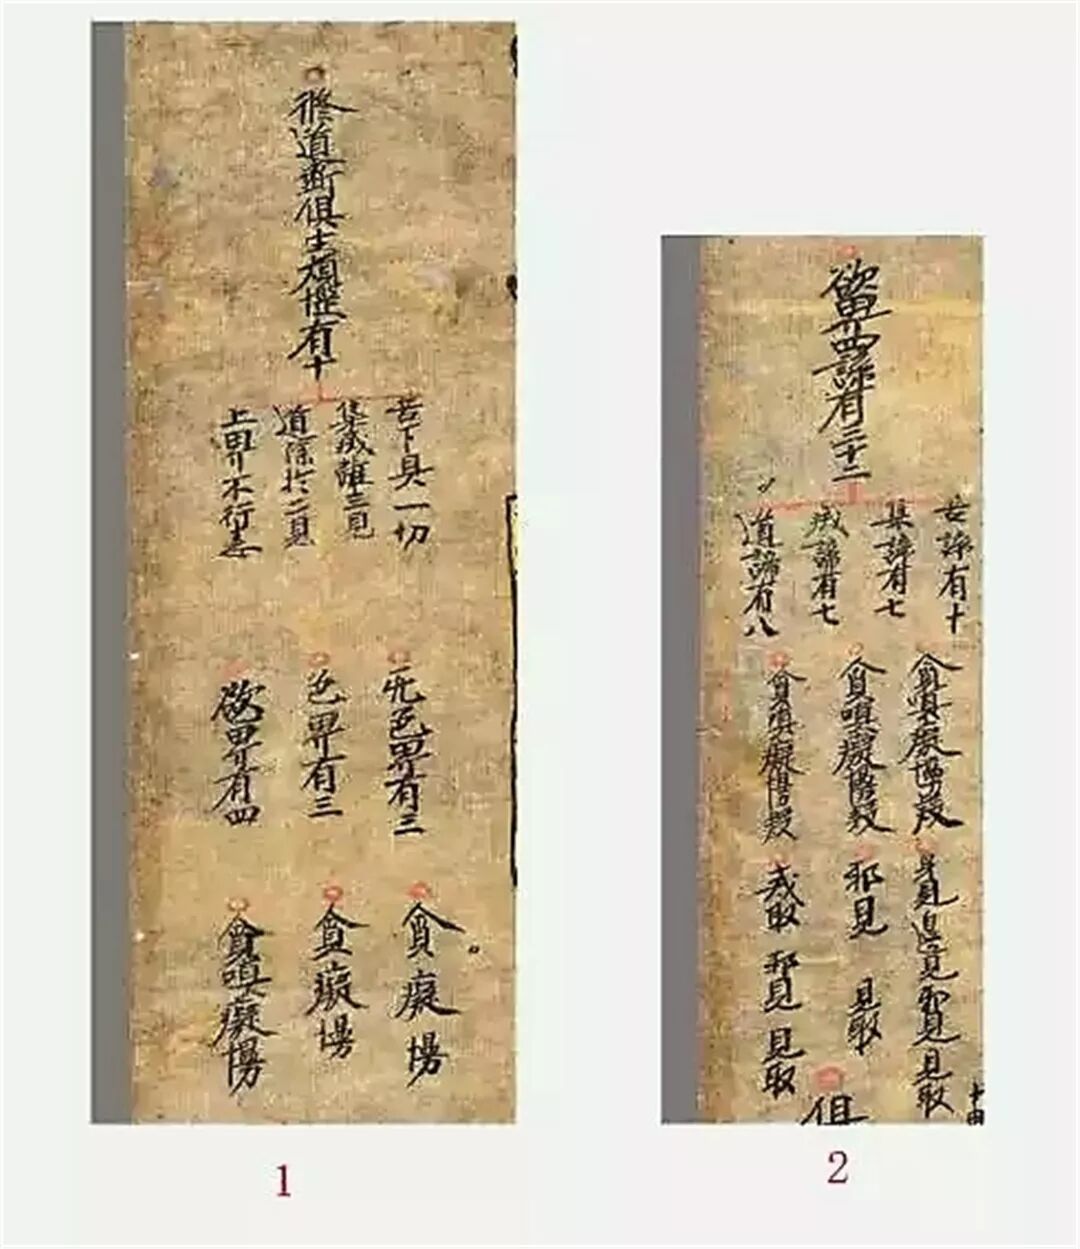 脩道断俱生煩惱有十
苦下具一切
集滅離三見
道除扵二見
上界不行恚
无色界有三
色界有三
欲界有四
貪癡慢
貪癡慢
貪嗔癡慢
1
欲界四諦有三十二
苦諦有十
集諦有七
滅諦有七
道諦有八
貪嗔癡慢疑
身見邊見邪見見取
貪嗔癡慢疑
邪見 見取
貪嗔癡慢疑
戒取 邪見 見取
俱
2